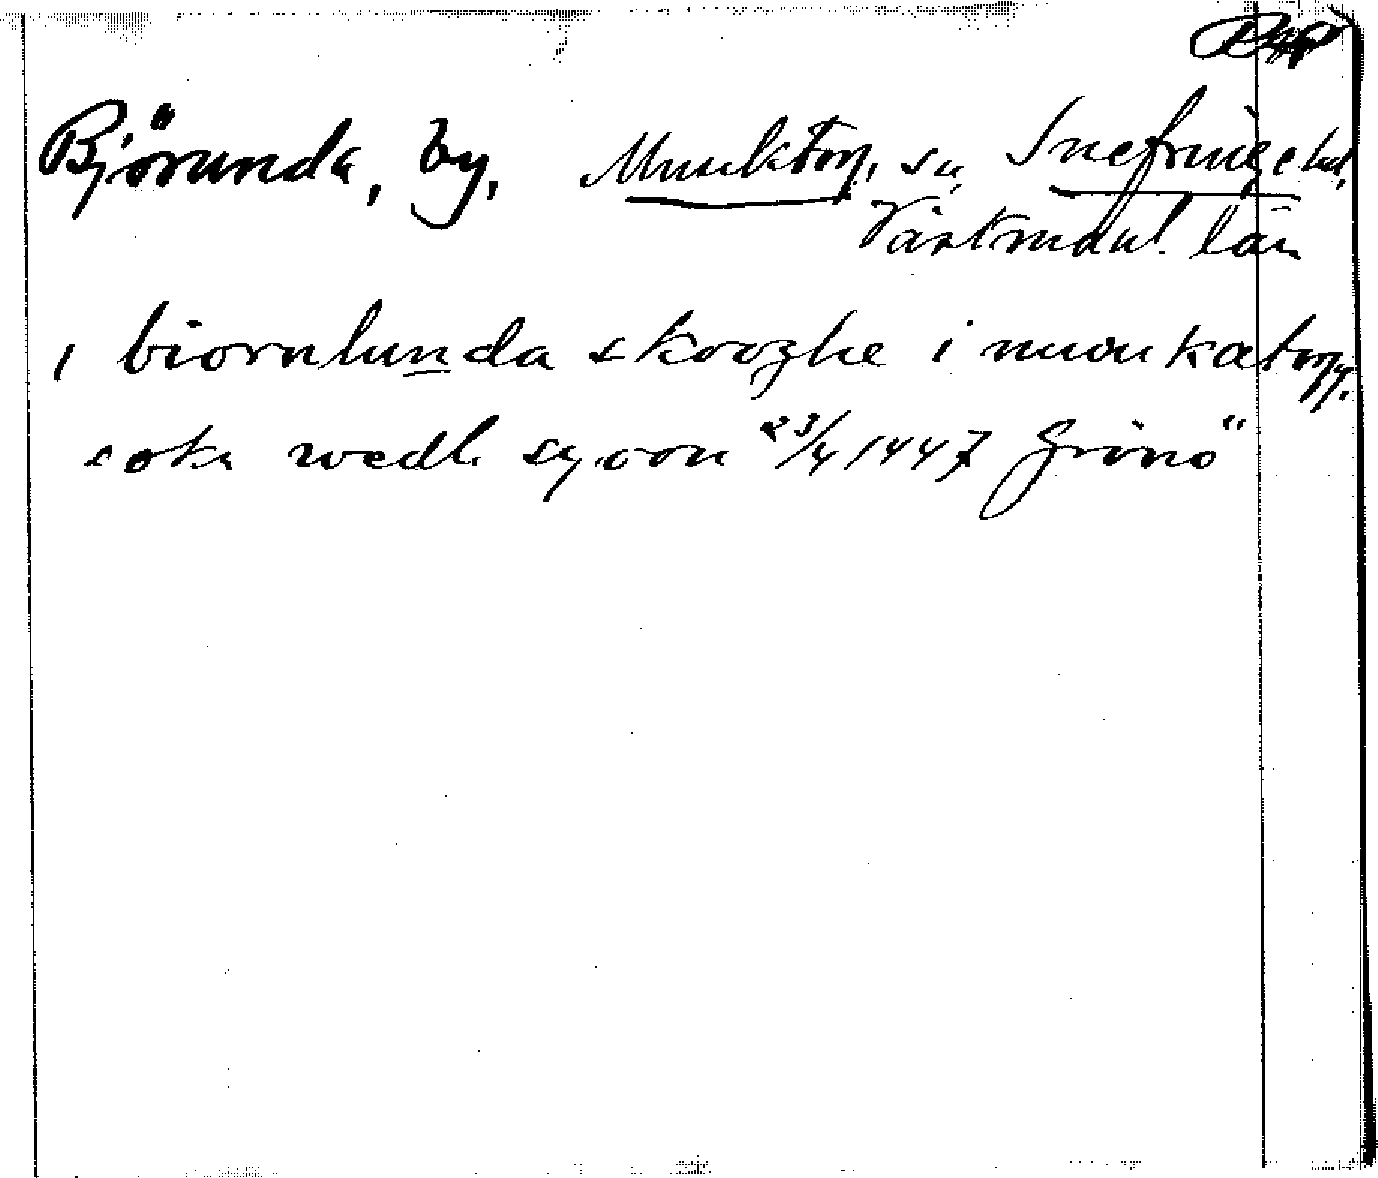 Björunda, by, Munktorp, sn, Snefringe hd,
Västmanl. län
i biornlunda skooghe i muunkatorp
sokn wedh syoon 23/4 1447 Grönö"